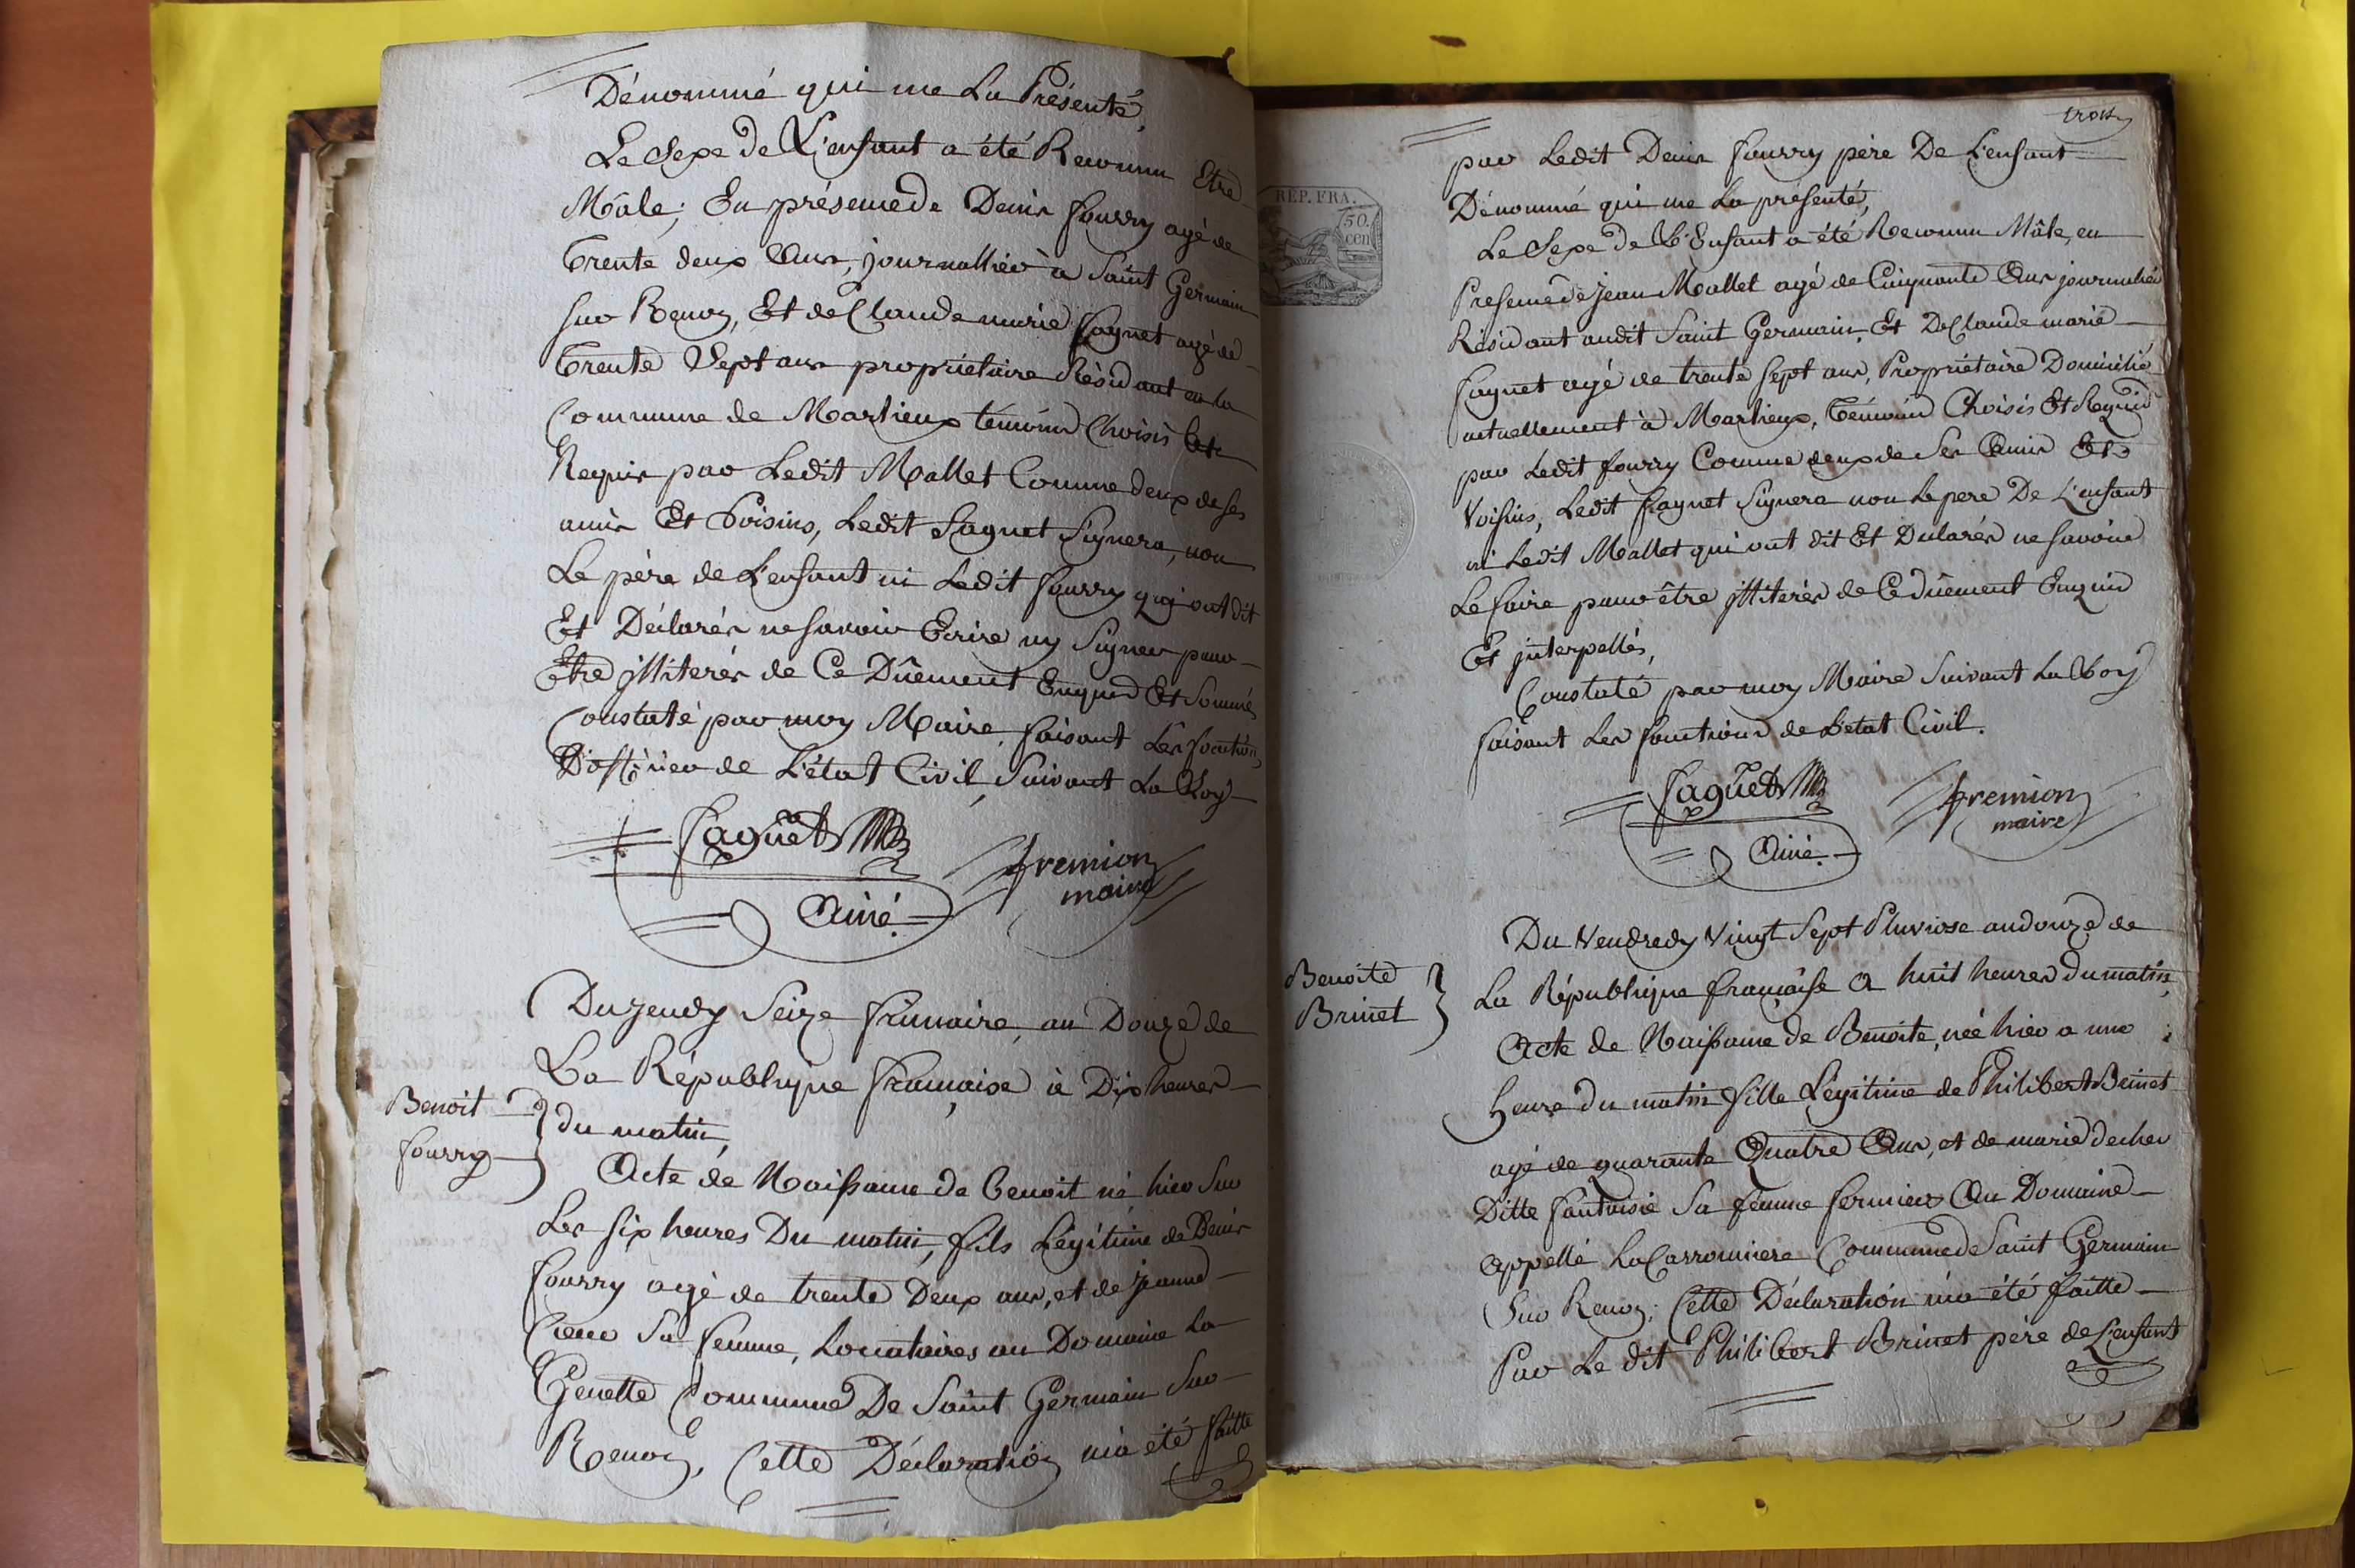 Dénommé qui me La Présenté,
Le Sexe de L'enfant a été Reconnu Etre
Mâle; En présence de Denis fourry agé de
Trente deux Ans, journallier à Saint Germain
sur Renon, Et de Claude marie faguet agé de
Trente Sept ans propriétaire Résidant en la
Commune de Marlieux témoins Choisis Et
Requis par Ledit Mallet Comme deux de ses
amis Et Voisins, Ledit faguet Signera, non
Le père de L'enfant ni Ledit fourry qui ont dit
Et Déclarés ne savoir Ecrire ny Signer pour
Etre illiterés de Ce Dûement Enquis Et Sommés
Constaté par moy Maire, faisant Les fonction
D'officier de L'état Civil, Suivant La Loy
faguet
Ainé
fremion
maire
Du jeudy Seize frimaire, an Douze de
La République française à Dix heures
Benoit
fourry
du matin,
Acte de Naissance de Benoit né hier sur
Les six heures Du matin, fils Légitime de Denis
fourry agé de trente Deux ans, et de jeanne
sa femme, Locataires au Domaine La
Genette Commune De Saint Germain Sur
Renon, Cette Déclaration m'a été faitte
trois
par Ledit Denis fourry père De L'enfant
Dénommé qui me La présenté,
Le Sexe de L'Enfant a été Reconnu Mâle, en
Presence de Jean Mallet agé de Cinquante Ans journalier
Résidant audit Saint Germain, Et De Claude marie
faguet agé de trente sept ans, Propriétaire Domicilié
actuellement à Marlieux, Témoins Choisis Et Requis
par Ledit fourry Comme deux de Ses Amis Et
Voisins, Ledit faguet Signera non Le pere De L'enfant
ni Ledit Mallet qui ont dit Et Déclarés ne savoir
Le faire pour être illiterés de Ce dûement Enquis
Et interpellés,
Constaté par moy Maire Suivant La Loy
faisant Les fonctions de L'etat Civil.
faguet
Ainé
fremion
maire
Du Vendredy Vingt Sept Pluviose an douze de
Benoite
Brinet
La République française a huit heures du matin,
Acte de Naissance de Benoite, née hier a une
heure du matin fille Légitime de Philibert Brinet
agé de quarante Quatre Ans, et de marie decher
Ditte fantaisie Sa femme fermiers Au Domaine
Appellé La Carronniere Commune de Saint Germain
Sur Renon; Cette Déclaration m'a été faitte
Par Le dit Philibert Brinet père de L'enfant
REP. FRA.
50.
cen